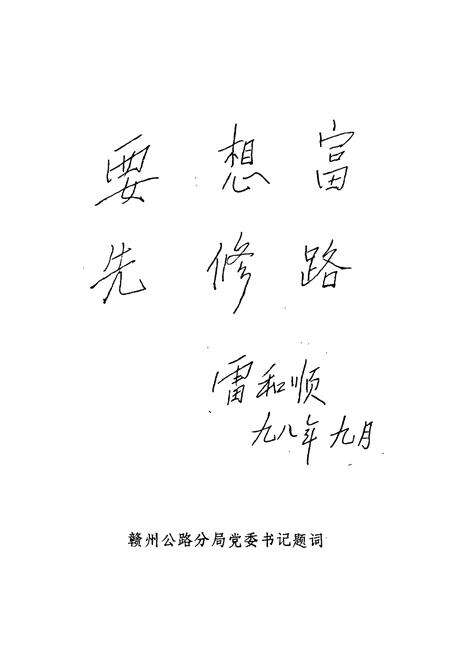 要想富
先修路
雷和顺
九八年九月
赣州公路分局党委书记题词